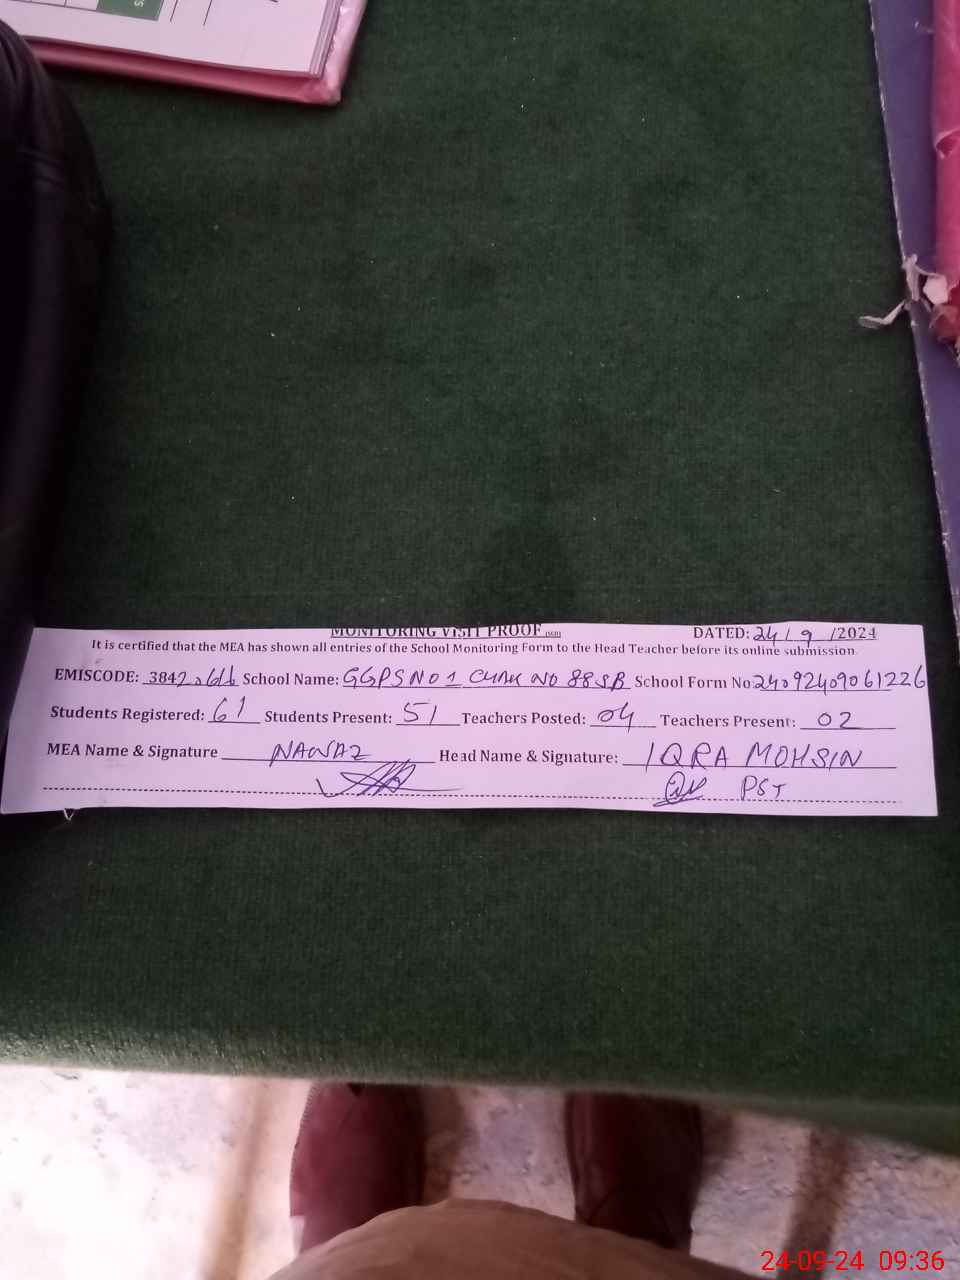 MONITORING VISIT PROOF
DATED: 24/9/2024
It is certified that the MEA has shown all entries of the School Monitoring Form to the Head Teacher before its online submission.
EMISCODE: School Name: GGPS NO 1 CHAK NO 88 SB School Form No: 24092409061226
Students Registered: 61 Students Present: 51 Teachers Posted: 04 Teachers Present: 02
MEA Name & Signature NAWAZ Head Name & Signature: IQRA MOHSIN
PST
24-09-24 09:36